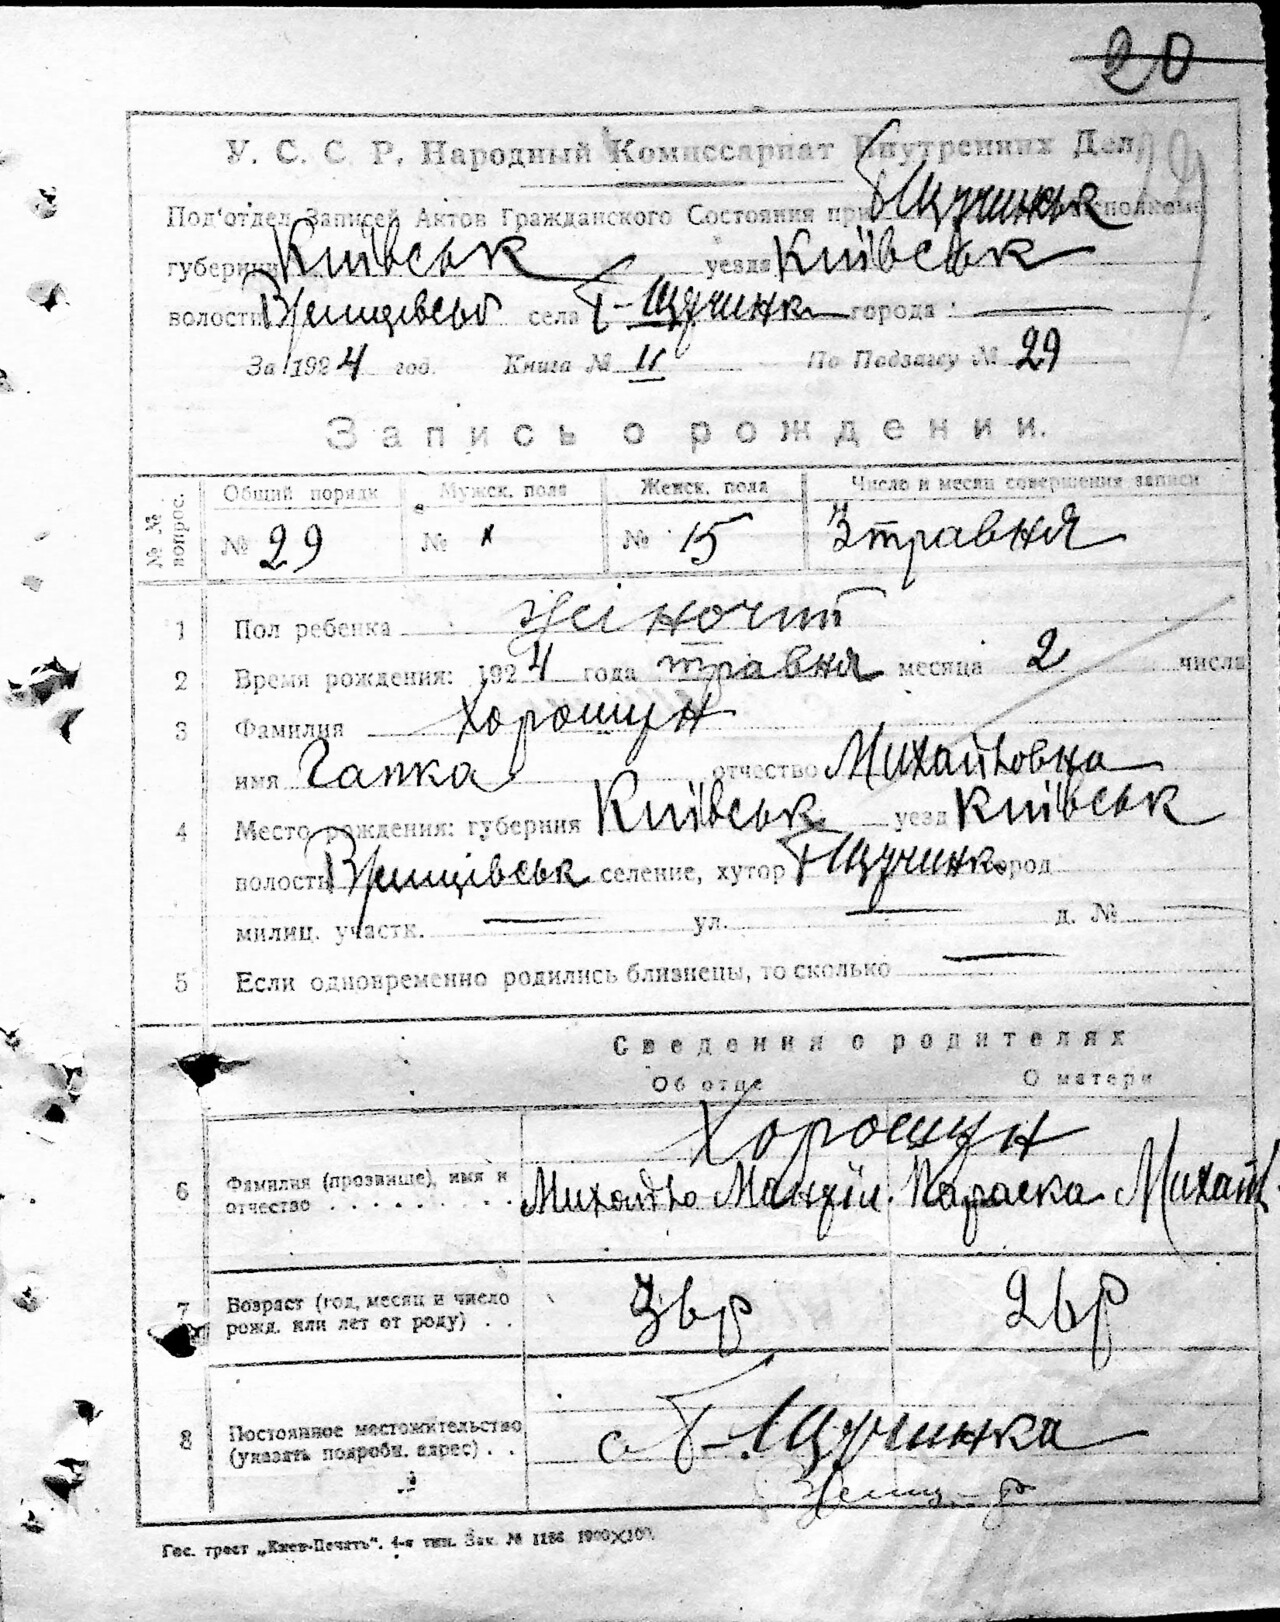 20
29
У. С. С. Р. Народный Комиссариат Внутренних Дел
Под'отдел Записей Актов Гражданского Состояния при Б Щучинськ исполкоме
губернии Київськ уезда Київськ
волости Ржищівсьв села Б-Щучинка города : —
За 1924 год. Книга № II По Подзагсу № 29
Запись о рождении.
№ № вопрос. Общий порядк Мужск. пола Женск. пола Число и месяц совершения записи
№ 29 № х № 15 3 травня
1 Пол ребенка жіночий
2 Время рождения: 1924 года травня месяца 2 числа
3 Фамилия Хорошун
имя Гапка отчество Михайловна
4 Место рождения: губерния Київськ уезд Київськ
волость Ржищівськ селение, хутор Б Щучинк город
милиц. участк. — ул. — д. № —
5 Если одновременно родились близнецы, то сколько —
Сведения о родителях
Об отце О матери
Хорошун
6 Фамилия (прозвище), имя и отчество Михайло Мануїл. Параска Михайл.
7 Возраст (год, месяц и число рожд. или лет от роду) 36 р 26 р
8 Постоянное местожительство (указать подробн. адрес) с Б-Щучинка
Гос. трест „Киев-Печать". 4-я тип. Зак. № 1186 1900×100